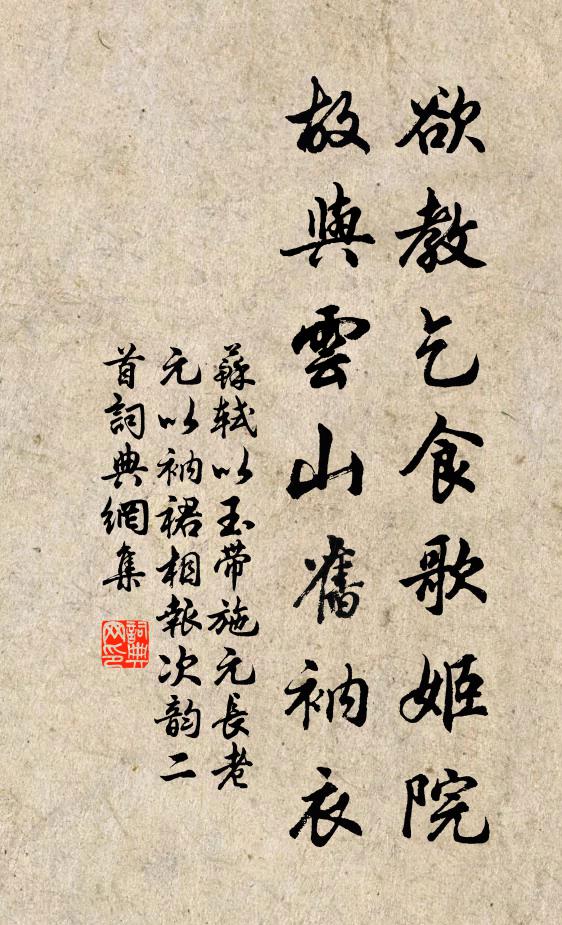 欲教乞食歌姬院
故與雲山舊衲衣
蘇軾以玉帶施元長老
元以衲裙相報次韵二
首詞典網集
詞典网印